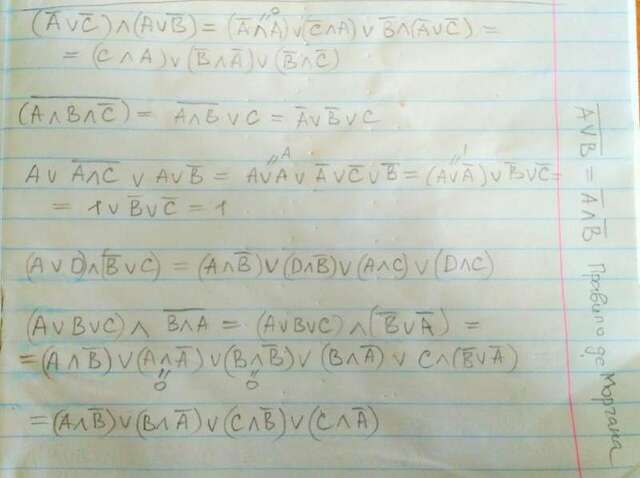 (A̅∨C̅)∧(A∨B̅) = (A̅∧A)∨(C̅∧A)∨B̅∧(A̅∨C̅) =
0
= (C∧A)∨(B̅∧A̅)∨(B̅∧C̅)
(A∧B∧C̅)̅ = A̅∧̅B̅∨C = A̅∨B̅∨C
A∨A̅∧̅C̅∨A∨B̅ = A∨A∨A̅∨C̅∨B̅ = (A∨A̅)∨B̅∨C̅ =
A 1
= 1∨B̅∨C̅ = 1
(A∨D)∧(B̅∨C) = (A∧B̅)∨(D∧B̅)∨(A∧C)∨(D∧C)
(A∨B∨C)∧B̅∧̅A̅ = (A∨B∨C)∧(B̅∨A̅) =
= (A∧B̅)∨(A∧A̅)∨(B∧B̅)∨(B∧A̅)∨C∧(B̅∨A̅)
0 0
= (A∧B̅)∨(B∧A̅)∨(C∧B̅)∨(C∧A̅)
A̅∨̅B̅ = A̅∧B̅ Правило де Моргана